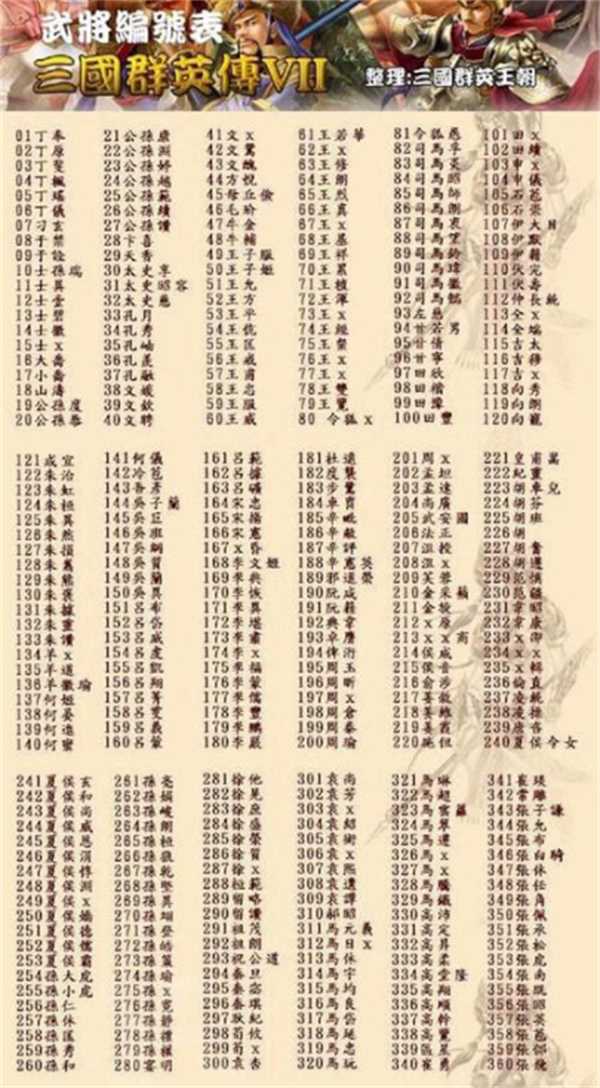 武將編號表
三國群英傳VII
整理:三國群英王朝
01丁奉
02丁原
03丁斐
04丁楓
05丁瑤
06丁儀
07刁玄
08于禁
09于詮
10士孫瑞
11士異
12士壹
13士碧
14士徽
15士x
16大喬
17小喬
18山濤
19公孫度
20公孫恭
21公孫康
22公孫淵
23公孫婷
24公孫越
25公孫範
26公孫續
27公孫瓚
28卞喜
29天香
30太史享
31太史昭容
32太史慈
33孔月
34孔秀
35孔岫
36孔羨
37孔融
38文媛
39文欽
40文聘
41文x
42文鴦
43文醜
44方悅
45毋丘儉
46毛玠
47牛金
48牛輔
49王子服
50王子姬
51王允
52王方
53王平
54王伉
55王匡
56王戎
57王甫
58王忠
59王服
60王威
61王若華
62王x
63王修
64王朗
65王烈
66王真
67王x
68王基
69王祥
70王累
71王植
72王渾
73王x
74王經
75王粲
76王x
77王x
78王雙
79王覽
80 令狐x
81令狐愚
82司馬孚
83司馬炎
84司馬昭
85司馬師
86司馬朗
87司馬衷
88司馬望
89司馬鈴
90司馬瑋
91司馬徽
92司馬懿
93左慈
94甘若男
95甘倩
96甘寧
97田欣
98田楷
99田豫
100田豐
101田x
102田續
103申x
104申儀
105石苞
106石崇
107伊大目
108伊默
109伊籍
110伏完
111伏壽
112仲長統
113全x
114全端
115吉太
116吉穆
117吉x
118向秀
119向朗
120向寵
121成宜
122朱治
123朱虹
124朱桓
125朱異
126朱然
127朱損
128朱蕭
129朱熊
130朱褒
131朱據
132朱靈
133朱讚
134羊x
135羊道
136羊徽瑜
137何姬
138何晏
139何進
140何蜜
141何儀
142冷苞
143吾彥
144吳子蘭
145吳巨
146吳班
147吳綱
148吳質
149吳蘭
150吳異
151呂布
152呂岱
153呂威
154呂虔
155呂凱
156呂翔
157呂菁
158呂雯
159呂義
160呂蒙
161呂範
162呂據
163呂曠
164宋忠
165宋揚
166宋憲
167x昏
168李文姬
169李典
170李恢
171李異
172李堪
173李肅
174李x
175李福
176李蒙
177李儒
178李豐
179李鵬
180李嚴
181杜遠
182度襲
183步騭
184車冑
185辛毗
186辛敞
187辛評
188辛憲英
189邢道榮
190阮咸
191阮籍
192典韋
193卓膺
194俾衍
195周玉
196周昕
197周x
198周倉
199周泰
200周瑜
201周x
202孟坦
203孟達
204尚廣
205武安國
206法正
207沮授
208沮x
209芙蓉
210金采蘋
211金旋
212x原
213xx商
214侯成
215侯音
216俞涉
217姜敘
218姜維
219姜霞
220施但
221皇甫嵩
222紀靈
223胡車兒
224胡芬
225胡班
226胡
227胡奮
228胡遵
229范慎
230范疆
231韋昭
232韋康
233x御
234xx
235x輯
236倫直
237凌統
238凌操
239唐咨
240夏侯令女
241夏侯玄
242夏侯和
243夏侯尚
244夏侯威
245夏侯恩
246夏侯渭
247夏侯惇
248夏侯淵
249夏侯x
250夏侯嬌
251夏侯德
252夏侯儒
253夏侯霸
254孫大虎
255孫小虎
256孫仁
257孫休
258孫匡
259孫秀
260孫和
261孫亮
262孫娟
263孫峻
264孫朗
265孫桓
266孫狼
267孫乾
268孫堅
269孫異
270孫翊
271孫登
272孫皓
273孫策
274孫瑜
275孫x
276孫霓
277孫靜
278孫禮
279孫權
280宴明
281徐他
282徐晃
283徐庶
284徐盛
285徐榮
286徐質
287徐x
288桓範
289留略
290留讚
291祖茂
292祖朗
293祝公道
294秦旦
295秦宓
296秦琪
297耿紀
298荀攸
299荀x
300袁杏
301袁尚
302袁芳
303袁x
304袁紹
305袁術
306袁x
307袁熙
308袁遺
309袁譚
310郝昭
311馬元義
312馬日x
313馬休
314馬宇
315馬均
316馬良
317馬岱
318馬延
319馬忠
320馬玩
321馬琳
322馬超
323馬雲騄
324馬翠
325馬遵
326馬x
327馬x
328馬騰
329馬鐵
330高沛
331高定
332高昇
333高柔
334高堂隆
335高翔
336高順
337高幹
338高覽
339區星
340崔勇
341崔琰
342常雕
343張子謙
344張允
345張布
346張白騎
347張休
348張任
349張角
350張佩
351張承
352張松
353張虎
354張南
355張既
356張昭
357張英
358張苞
359張郃
360張飛